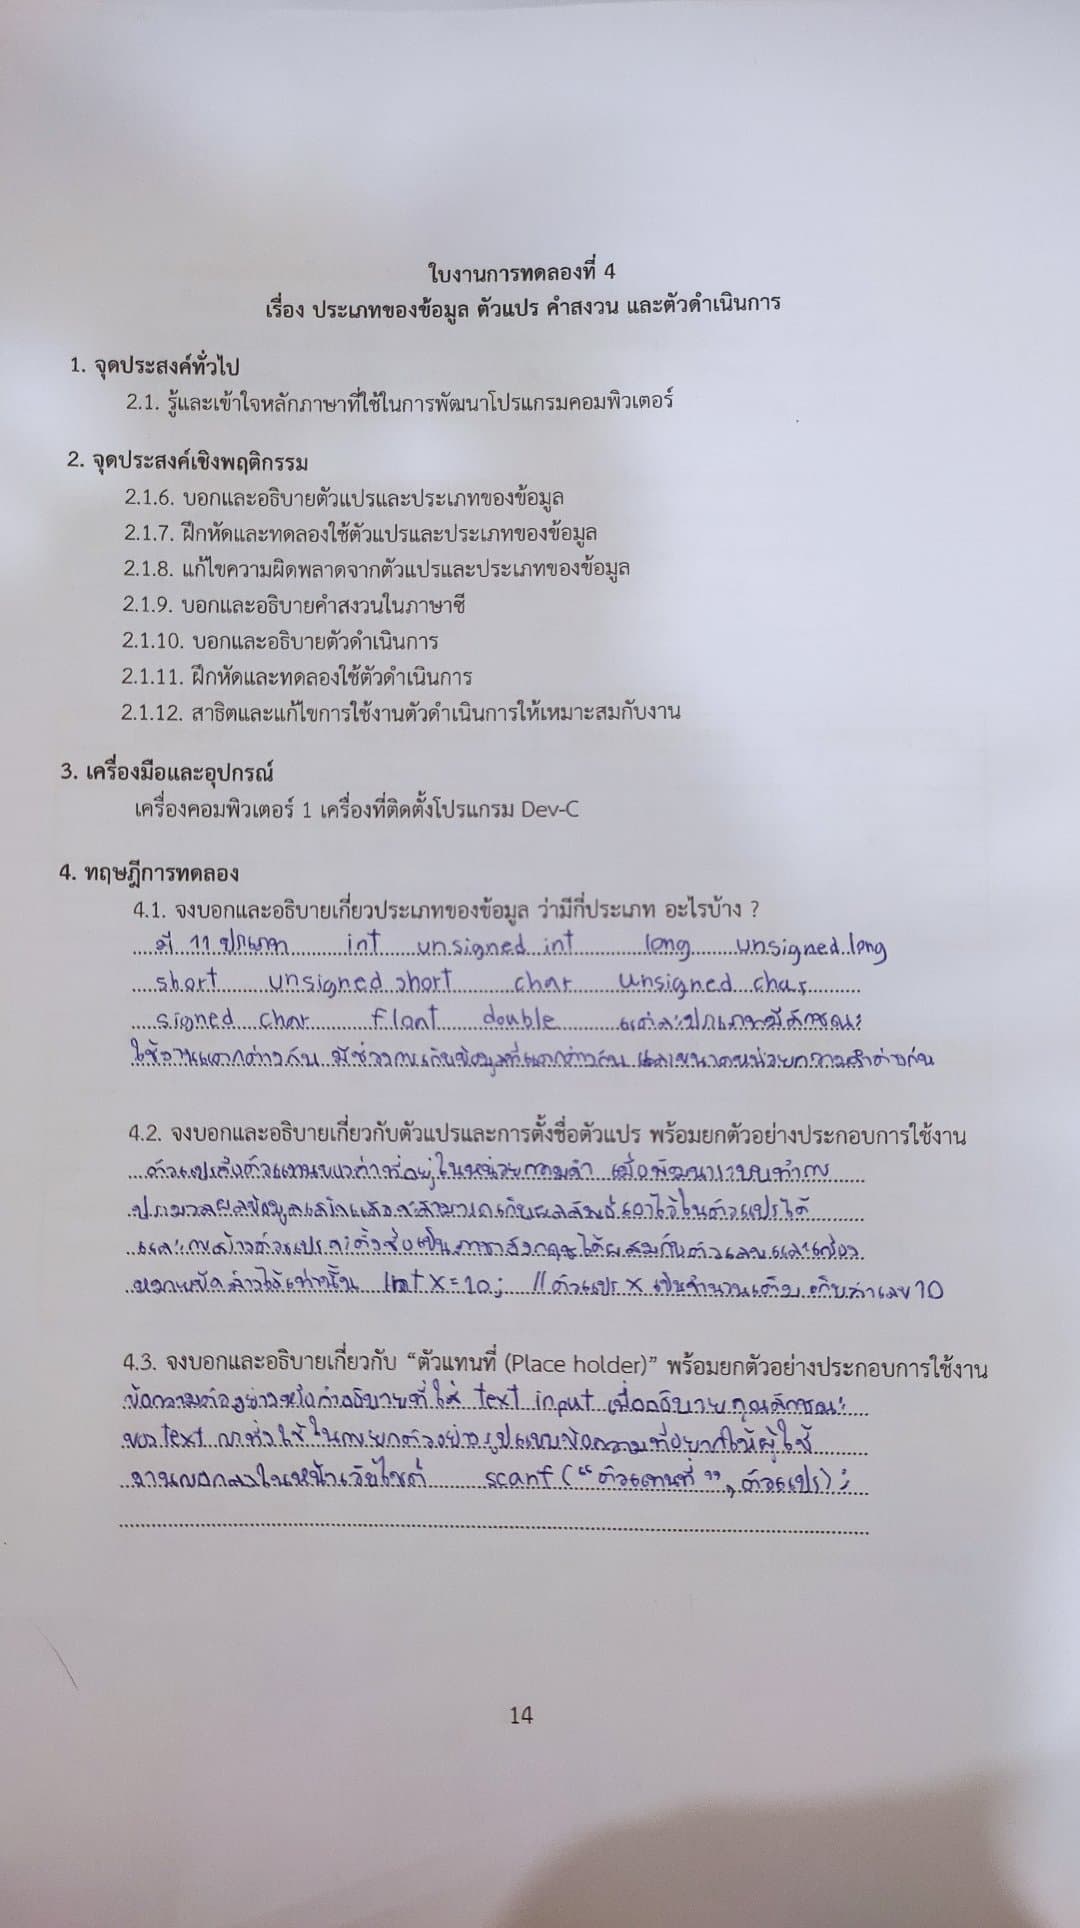 ใบงานการทดลองที่ 4
เรื่อง ประเภทของข้อมูล ตัวแปร คำสงวน และตัวดำเนินการ
1. จุดประสงค์ทั่วไป
2.1. รู้และเข้าใจหลักภาษาที่ใช้ในการพัฒนาโปรแกรมคอมพิวเตอร์
2. จุดประสงค์เชิงพฤติกรรม
2.1.6. บอกและอธิบายตัวแปรและประเภทของข้อมูล
2.1.7. ฝึกหัดและทดลองใช้ตัวแปรและประเภทของข้อมูล
2.1.8. แก้ไขความผิดพลาดจากตัวแปรและประเภทของข้อมูล
2.1.9. บอกและอธิบายคำสงวนในภาษาซี
2.1.10. บอกและอธิบายตัวดำเนินการ
2.1.11. ฝึกหัดและทดลองใช้ตัวดำเนินการ
2.1.12. สาธิตและแก้ไขการใช้งานตัวดำเนินการให้เหมาะสมกับงาน
3. เครื่องมือและอุปกรณ์
เครื่องคอมพิวเตอร์ 1 เครื่องที่ติดตั้งโปรแกรม Dev-C
4. ทฤษฎีการทดลอง
4.1. จงบอกและอธิบายเกี่ยวประเภทของข้อมูล ว่ามีกี่ประเภท อะไรบ้าง ?
มี 11 ประเภท int unsigned int long unsigned long
short unsigned short char unsigned char
signed char float double แต่ละประเภทมีลักษณะ
ใช้งานแตกต่างกัน มีช่วงการเก็บข้อมูลที่แตกต่างกัน และขนาดหน่วยความจำต่างกัน
4.2. จงบอกและอธิบายเกี่ยวกับตัวแปรและการตั้งชื่อตัวแปร พร้อมยกตัวอย่างประกอบการใช้งาน
ตัวแปรคือตัวแทนของค่าที่อยู่ในหน่วยความจำ เมื่อพัฒนาระบบทำการ
ประมวลผลข้อมูลเสร็จแล้วจะสามารถเก็บผลลัพธ์เอาไว้ในตัวแปรได้
และการสร้างตัวแปรจะตั้งชื่อเป็นภาษาอังกฤษได้ผสมกับตัวเลขและเครื่อง
หมายขีดล่างได้เท่านั้น int x = 10; // ตัวแปร x เป็นจำนวนเต็ม เก็บค่าเลข 10
4.3. จงบอกและอธิบายเกี่ยวกับ “ตัวแทนที่ (Place holder)” พร้อมยกตัวอย่างประกอบการใช้งาน
ข้อความตัวอย่างหรือคำอธิบายที่ใส่ text input เพื่ออธิบายคุณลักษณะ
ของ text การทั่วใช้ในการยกตัวอย่างรูปแบบข้อความที่อยากให้ผู้ใช้
งานกรอกลงในหน้าเว็บไซต์ scanf (“ตัวแทนที่”, ตัวแปร);
14